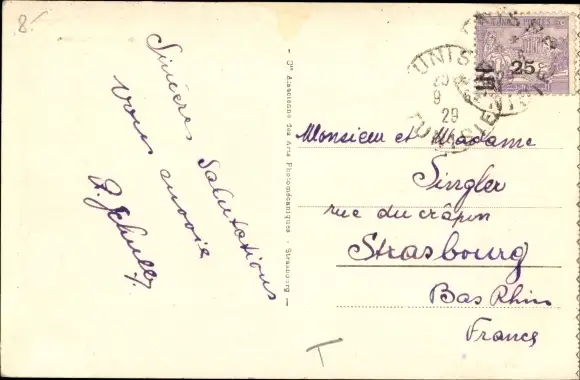 8.-
Sincères Salutations
vous envoie
P. Schuller
- Cie Alsacienne des Arts Photomécaniques - Strasbourg -
POSTES
25c
TUNIS
29
9
29
TUNISIE
Monsieur et Madame
Singler
rue du crâpin
Strasbourg
Bas Rhin
France
T